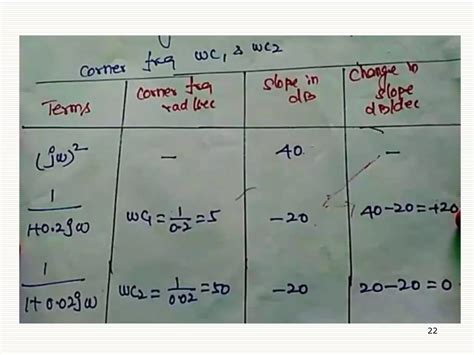 corner frq wc1 & wc2
Terms | corner frq rad/sec | slope in dB | change in slope dB/dec
(jω)² | — | 40 | —
1/1+0.2jω | wc1 = 1/0.2 = 5 | −20 | 40−20=+20
1/1+0.02jω | wc2 = 1/0.02 = 50 | −20 | 20−20=0
22